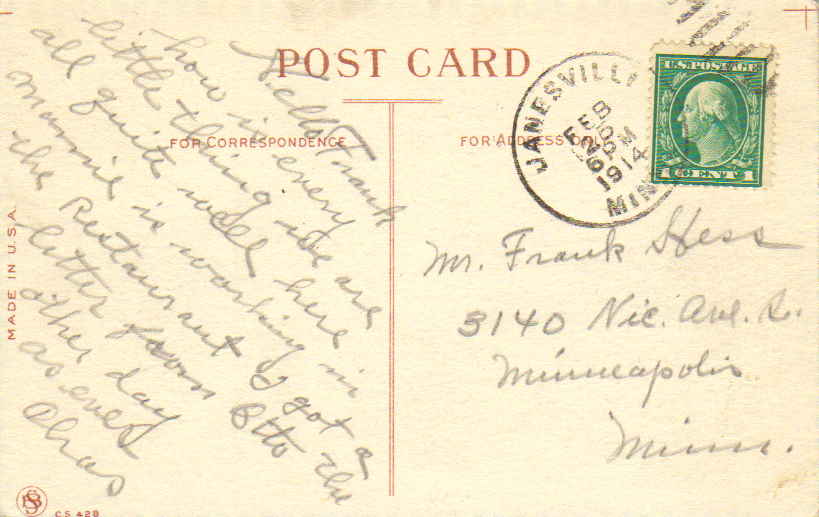 POST CARD
FOR CORRESPONDENCE
FOR ADDRESS ONLY
Hello Frank
how is every
little thing we are
all quite well here
mammie is working in
the Restaurant I got a
letter from Otto the
other day
as ever
Chas
JANESVILLE
FEB
6 PM
1914
MINN
U.S. POSTAGE
1 CENT 1
Mr. Frank Hess
3140 Nic. Ave. S.
Minneapolis
Minn.
MADE IN U.S.A.
C.S. 428